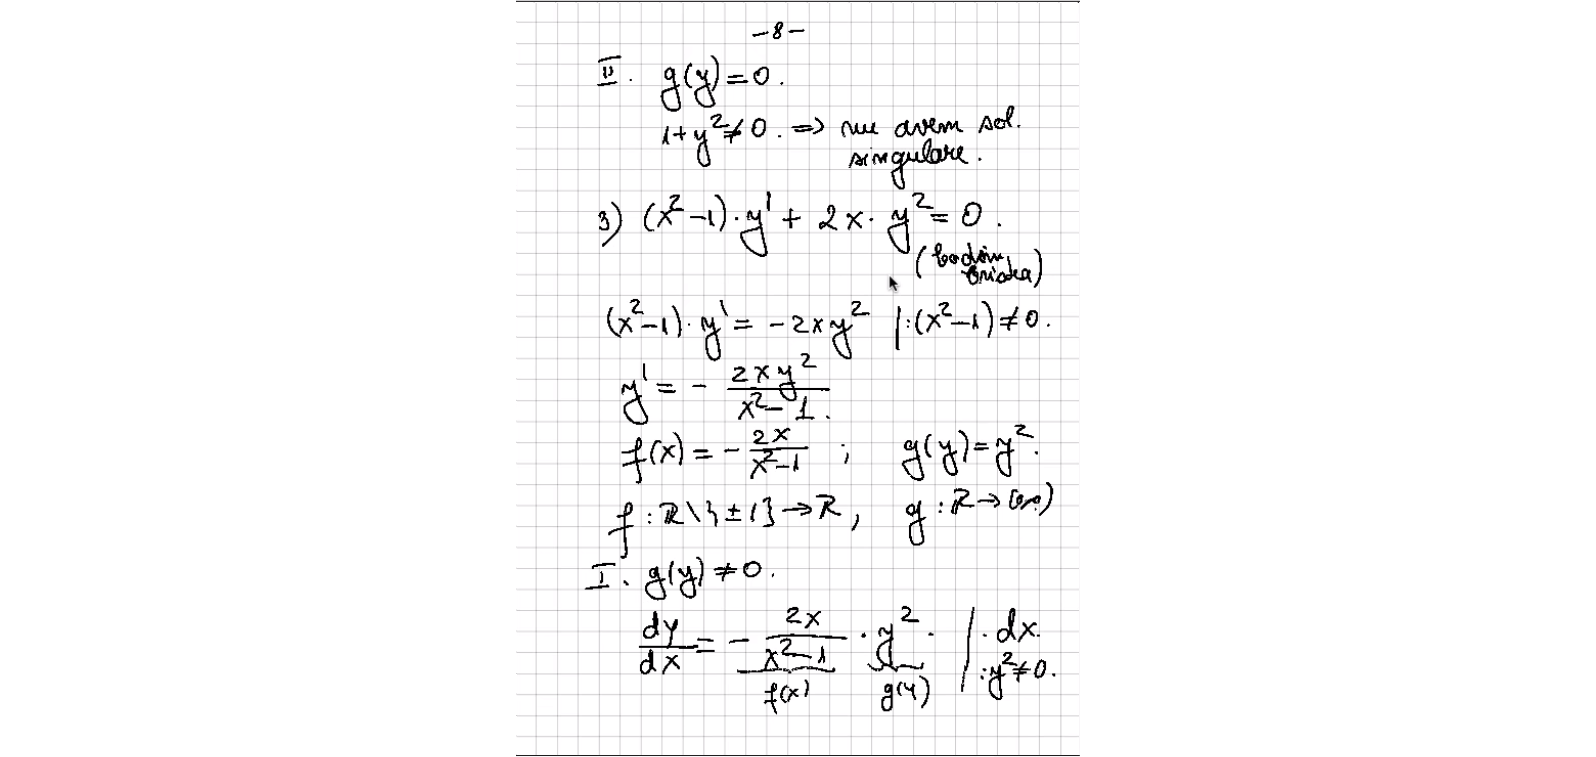 -8-
II. g(y)=0.
1+y²≠0. => nu avem sol.
singulare.
3) (x²-1)·y' + 2x·y² = 0.
(x²-1)·y' = -2xy² |:(x²-1)≠0.
y' = - 2xy² / x²-1.
f(x) = - 2x / x²-1 ; g(y)=y².
f: R\{±1}→R, g: R→[0,∞)
I. g(y)≠0.
dy/dx = - 2x / x²-1 · y². | · dx.
:y²≠0.
f(x) g(y)